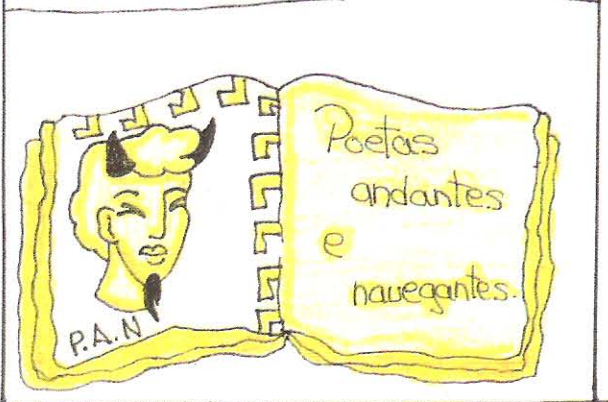 P.A.N
Poetas
andantes
e
navegantes.